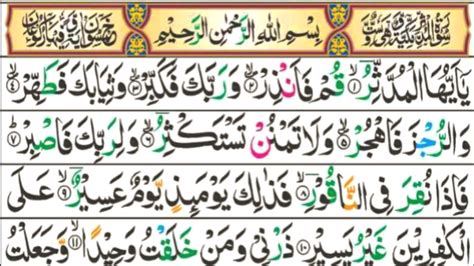 بِسْمِ اللهِ الرَّحْمٰنِ الرَّحِيْمِ
يٰۤاَيُّهَا الْمُدَّثِّرُ ۙ﴿۱﴾ قُمْ فَاَنْذِرْ ۪ۙ﴿۲﴾ وَ رَبَّكَ فَكَبِّرْ ۪ۙ﴿۳﴾ وَثِيَابَكَ فَطَهِّرْ ۪ۙ﴿۴﴾
وَالرُّجْزَ فَاهْجُرْ ۪ۙ﴿۵﴾ وَلَا تَمْنُنْ تَسْتَكْثِرُ ۪ۙ﴿۶﴾ وَلِرَبِّكَ فَاصْبِرْ ؕ﴿۷﴾
فَاِذَا نُقِرَ فِى النَّاقُوْرِ ۙ﴿۸﴾ فَذٰلِكَ يَوْمَىِٕذٍ يَّوْمٌ عَسِيْرٌ ۙ﴿۹﴾ عَلَى
الْكٰفِرِيْنَ غَيْرُ يَسِيْرٍ ﴿۱۰﴾ ذَرْنِىْ وَمَنْ خَلَقْتُ وَحِيْدًا ۙ﴿۱۱﴾ وَّجَعَلْتُ